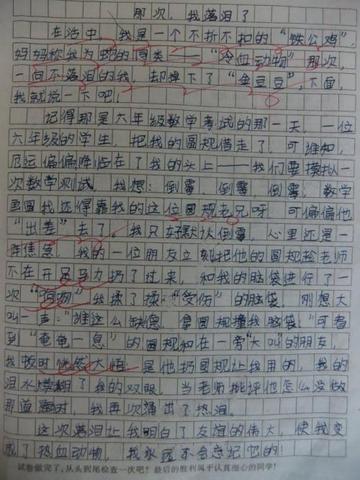 那次，我落泪了
在活中，我是一个不折不扣的“铁公鸡”
妈妈称我为蛇的同类——“冷血动物”那次，
一向不落泪的我，却掉下了“金豆豆”，下面，
我就说一下吧！
记得那是六年级数学考试的那一天，一位
六年级的学生，把我的圆规借走了，可谁知，
厄运偏偏降临在了我的头上——我们要模拟一
次数学测试，我想：倒霉，倒霉，倒霉，数学
里面我还得靠我的这位圆规老兄呀，可偏偏他
“出卷”去了，我只好默认倒霉，心里还是一
阵焦急，我的一位朋友立刻把他的圆规趁老师
不在开足马力扔了过来，和我的脑袋进行了一
次“问吻”我揉了揉“受伤”的脑袋，刚想大
叫一声：“谁这么缺德，拿圆规撞我脑袋。”可看
到“奄奄一息”的圆规和在一旁大叫的朋友，
我顿时恍然大悟，是他扔圆规让我用的，我的
泪水模糊了我的双眼，当老师批评他怎么没做
那道题时，我再次涌出了热泪。
这次落泪让我明白了友谊的伟大，使我变
成了热血动物，我永远不会忘记吧的！
试卷做完了，从头到尾检查一次吧？最后的胜利属于认真细心的同学！